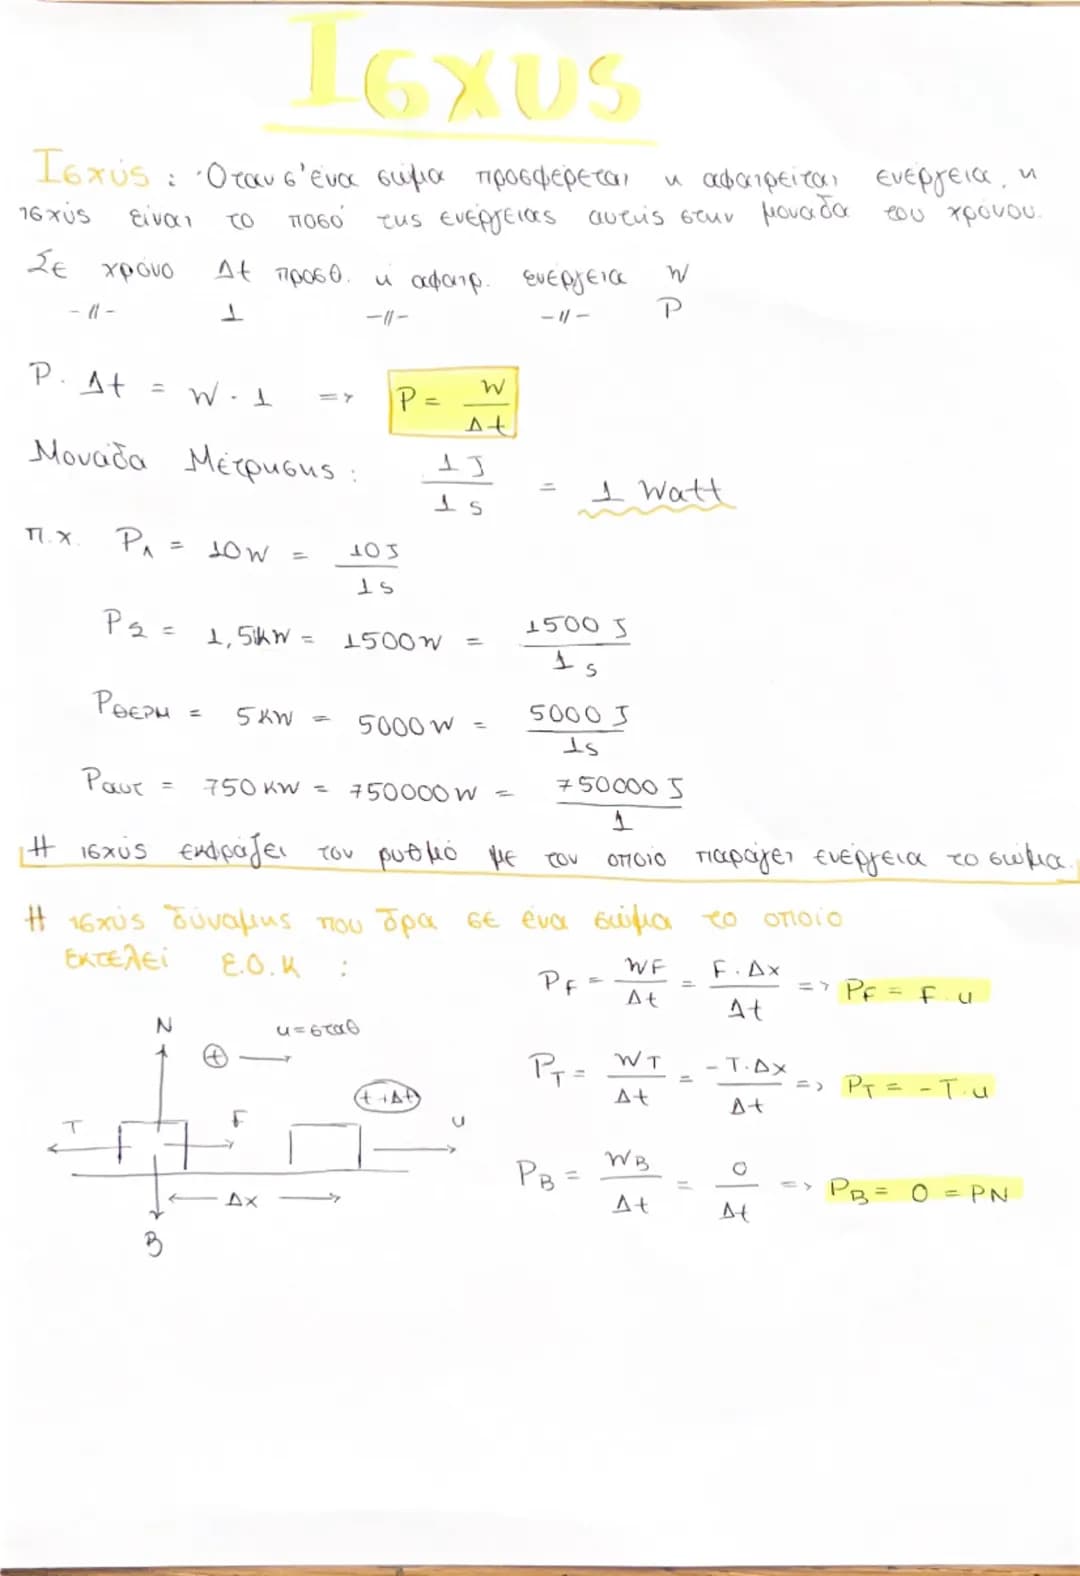 Ισχυς
Ισχύς : Όταν σ'ένα σώμα προσφέρεται η αφαιρείται ενέργεια, η
ισχύς είναι το ποσό της ενέργειας αυτής στην μονάδα του χρόνου.
Σε χρόνο Δt προσθ. η αφαιρ. ενέργεια W
-//- 1 -//- -//- P
P. Δt = W . 1 => P = W/Δt
Μονάδα Μέτρησης : 1J/1s = 1 Watt
π.χ. P₁ = 10W = 10J/1s
P₂ = 1,5kW = 1500W = 1500J/1s
Pθερμ = 5KW = 5000W = 5000J/1s
Pαυτ = 750KW = 750000W = 750000J/1
Η ισχύς εκφράζει τον ρυθμό με τον οποίο παράγει ενέργεια το σώμα.
Η ισχύς δύναμης που δρα σε ένα σώμα το οποίο
εκτελεί Ε.Ο.Κ :
PF = WF/Δt = F.Δx/Δt => PF = F.υ
N ⊕ υ=σταθ
PT = WT/Δt = -T.Δx/Δt => PT = -T.υ
t+Δt
T F υ
PB = WB/Δt = 0/Δt => PB = 0 = PN
Δx
B